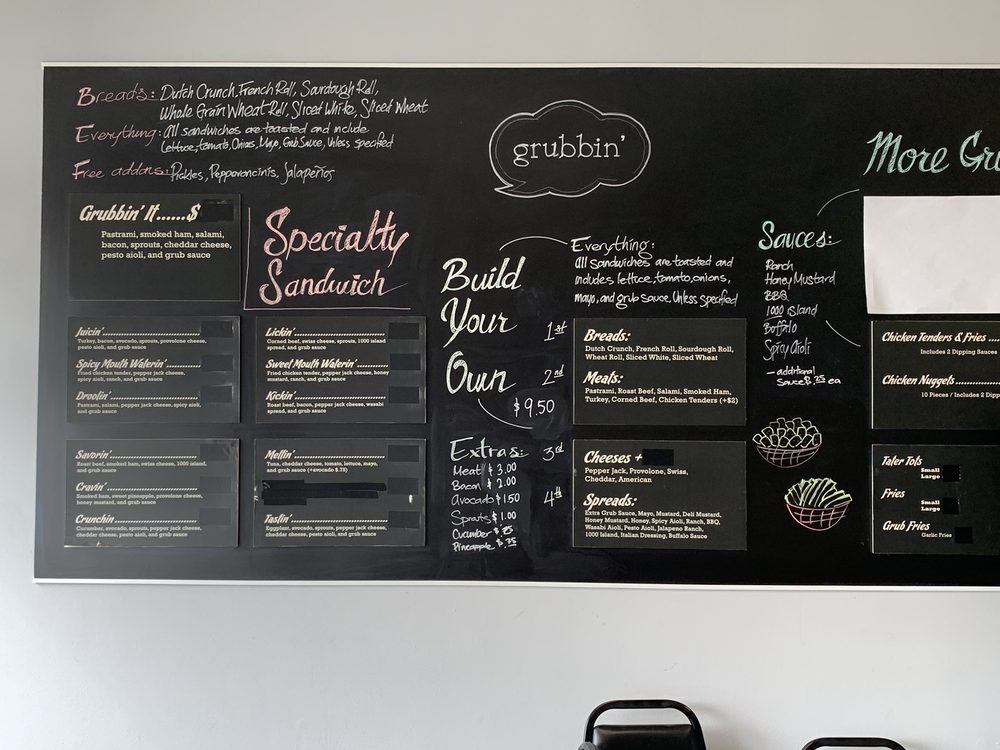 Breads: Dutch Crunch, French Roll, Sourdough Roll,
Whole Grain Wheat Roll, Sliced White, Sliced Wheat
Everything: All sandwiches are toasted and include
Lettuce, tomato, Onions, Mayo, Grub Sauce, Unless specified
Free addons: Pickles, Pepperoncinis, Jalapeños
Grubbin' It......$
Pastrami, smoked ham, salami,
bacon, sprouts, cheddar cheese,
pesto aioli, and grub sauce
Specialty
Sandwich
Juicin'
Turkey, bacon, avocado, sprouts, provolone cheese,
pesto aioli, and grub sauce
Spicy Mouth Waterin'
Fried chicken tender, pepper jack cheese,
spicy aioli, ranch, and grub sauce
Droolin'
Pastrami, salami, pepper jack cheese, spicy aioli,
and grub sauce
Lickin'
Corned beef, swiss cheese, sprouts, 1000 island
spread, and grub sauce
Sweet Mouth Waterin'
Fried chicken tender, pepper jack cheese, honey
mustard, ranch, and grub sauce
Kickin'
Roast beef, bacon, pepper jack cheese, wasabi
spread, and grub sauce
Savorin'
Roast beef, smoked ham, swiss cheese, 1000 island,
and grub sauce
Cravin'
Smoked ham, sweet pineapple, provolone cheese,
honey mustard, and grub sauce
Crunchin
Cucumber, avocado, sprouts, pepper jack cheese,
cheddar cheese, pesto aioli, and grub sauce
Meltin'
Tuna, cheddar cheese, tomato, lettuce, mayo,
and grub sauce (+avocado $.75)
Tastin'
Eggplant, avocado, sprouts, pepper jack cheese,
cheddar cheese, pesto aioli, and grub sauce
grubbin'
Build
Your
Own
$9.50
Everything:
All Sandwiches are toasted and
includes lettuce, tomato, onions,
mayo, and grub sauce, Unless specified
1st
Breads:
Dutch Crunch, French Roll, Sourdough Roll,
Wheat Roll, Sliced White, Sliced Wheat
2nd
Meats:
Pastrami, Roast Beef, Salami, Smoked Ham,
Turkey, Corned Beef, Chicken Tenders (+$2)
Extras:
Meat $3.00
Bacon $2.00
Avocado $1.50
Sprouts $1.00
Cucumber $.75
Pineapple $.75
3rd
Cheeses +
Pepper Jack, Provolone, Swiss,
Cheddar, American
4th
Spreads:
Extra Grub Sauce, Mayo, Mustard, Deli Mustard,
Honey Mustard, Honey, Spicy Aioli, Ranch, BBQ,
Wasabi Aioli, Pesto Aioli, Jalapeno Ranch,
1000 Island, Italian Dressing, Buffalo Sauce
Sauces:
Ranch
Honey Mustard
BBQ
1000 island
Buffalo
Spicy Aioli
- additional
Sauces .75 ea
More Gru
Chicken Tenders & Fries
Includes 2 Dipping Sauces
Chicken Nuggets
10 Pieces / Includes 2 Dipp
Tater Tots
Small
Large
Fries
Small
Large
Grub Fries
Garlic Fries